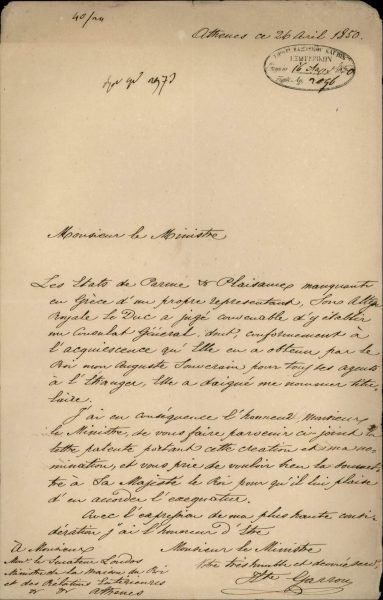 40/20
Athènes ce 26 Avril 1850.
ΕΞΩΤΕΡΙΚΩΝ
2096
2973
Monsieur le Ministre
Les Etats de Parme & Plaisance manquant
en Grèce d'un propre représentant, Son Altesse
royale le Duc a jugé convenable d'y établir
un Consulat Général, dont, conformément à
l'acquiescence qu'Elle en a obtenu par le
Roi mon Auguste Souverain pour tous ses agents
à l'Etranger, Elle a daigné me nommer titu-
laire.
J'ai en conséquence l'honneur, Monsieur
le Ministre, de vous faire parvenir ci-joint la
lettre patente portant cette création et ma no-
mination, et vous prie de vouloir bien la soumet-
tre à Sa Majesté le Roi pour qu'il lui plaise
d'en accorder l'exequatur.
Avec l'expression de ma plus haute consi-
dération j'ai l'honneur d'Etre
Monsieur le Ministre
Votre très humble et dévoué serv.
A Monsieur
Monsr le Sénateur Londos
Ministre de la Maison du Roi
et des Relations Extérieures
&c &c Athènes